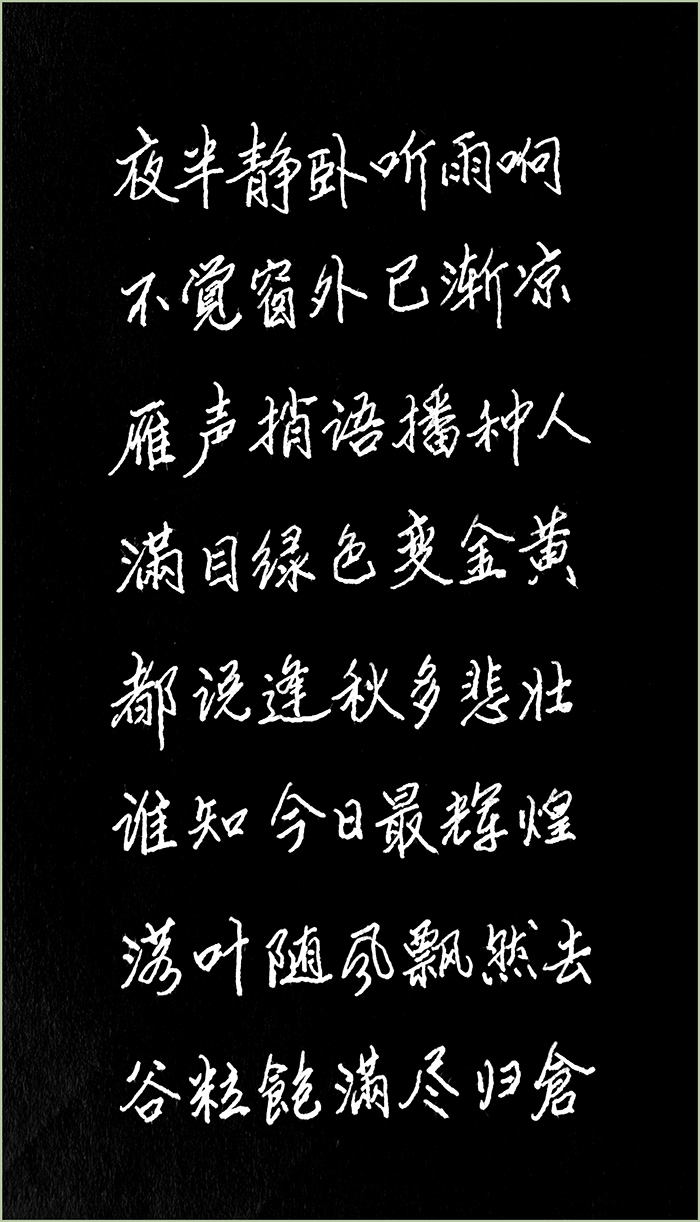 夜半静卧听雨响
不覺窗外已渐凉
雁声捎语播种人
滿目绿色变金黄
都说逢秋多悲壮
谁知今日最辉煌
落叶随风飘然去
谷粒飽滿尽归倉